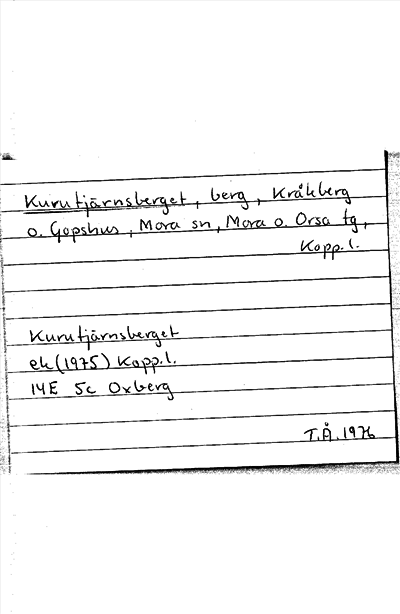 Kurutjärnsberget, berg, Kråkberg
o. Gopshus, Mora sn, Mora o. Orsa tg,
Kopp. l.
Kurutjärnsberget
ek (1975) Kopp. l.
14E 5c Oxberg
T.Å. 1976